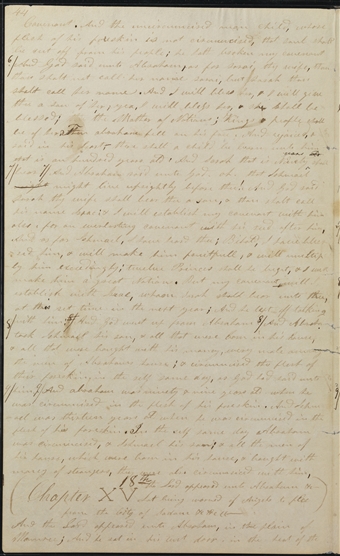 Covenant. And the uncircumcised man child, whose
flesh of his foreskin is not circumcised, that soul shall
be cut off from his people; he hath broken my covenant
And God said unto Abraham, as for Sarai, thy wife, thou
shalt not call her name Sarai, but Sarah thou
shalt call her name. And I will bless her, & I will give
thee a son of her; yea, I will bless her, & she shall be
blessed; the Mother of Nations; Kings & people shall
be of her. Then Abraham fell on his face, and rejoiced, &
said in his heart, there shall a child be
an hundred years old. And Sarah that is ninety
And Abraham said unto God, Oh that Ishmael
might live uprightly before thee. And God said
Sarah thy wife shall bear thee a son, & thou shalt call
his name Isaac; & I will establish my covenant with him
also, for an everlasting covenant with his seed after him,
And as for Ishmael, I have heard thee; Behold, I have blessed
him, & will make him fruitful, & will multiply
him exceedingly; twelve Princes shall he beget, & I will
make him a great Nation. But my covenant will
establish with Isaac, whom Sarah shall bear unto thee,
at this set time in the next year; And he left off talking
with him; & God went up from Abraham 8/ And Abraham
took Ishmael his son, & all that were born in his house,
& all that was bought with his money, every male among
the men of Abraham's house; & circumcised the flesh of
their foreskin, in the self same day, as God had said unto
him. And Abraham was ninety & nine years old when he
was circumcised in the flesh of his foreskin. And
was thirteen years old when he was circumcised in the
flesh of his foreskin. In the self same day Abraham
was circumcised, & Ishmael his son; & all the men of
his house, which were born in his house, & bought with
money of strangers, were also circumcised with him,
Chapter XV 18th The Lord appeared unto Abraham &
And the Lord appeared unto Abraham, in the plains of
Mamre; And he sat in his tent door in the heat of the